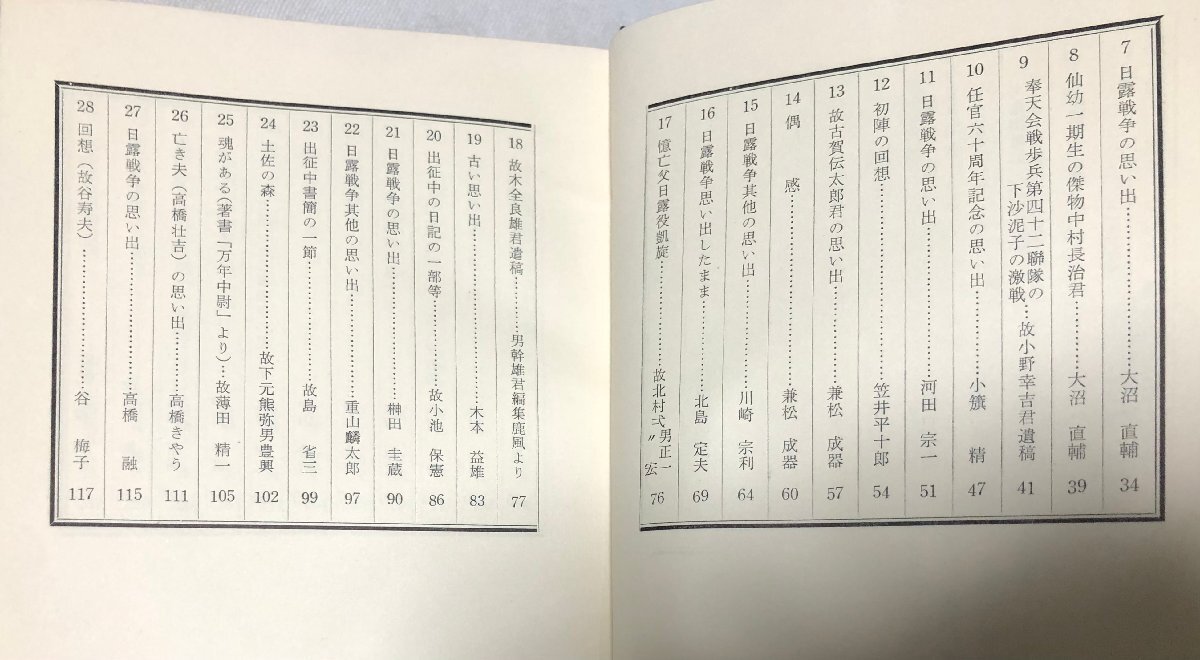 7 日露戦争の思い出…………大沼 直輔 34
8 仙幼一期生の傑物中村長治君…………大沼 直輔 39
9 奉天会戦歩兵第四十二聯隊の
下沙泥子の激戦…故小野幸吉君遺稿 41
10 任官六十周年記念の思い出…………小籏 精 47
11 日露戦争の思い出…………河田 宗一 51
12 初陣の回想…………笠井平十郎 54
13 故古賀伝太郎君の思い出…………兼松 成器 57
14 偶感…………兼松 成器 60
15 日露戦争其他の思い出…………川崎 宗利 64
16 日露戦争思い出したまま…………北島 定夫 69
17 憶亡父日露役凱旋…………故北村弌男正一
〃 宏 76
18 故木全良雄君遺稿…………男幹雄君編集鹿風より 77
19 古い思い出…………木本 益雄 83
20 出征中の日記の一部等…………故小池 保憲 86
21 日露戦争の思い出…………榊田 圭蔵 90
22 日露戦争其他の思い出…………重山麟太郎 97
23 出征中書簡の一節…………故島 省三 99
24 土佐の森…………故下元熊弥男豊興 102
25 魂がある(著書「万年中尉」より)…故薄田 精一 105
26 亡き夫(高橋壮吉)の思い出…………高橋きやう 111
27 日露戦争の思い出…………高橋 融 115
28 回想(故谷寿夫)…………谷 梅子 117